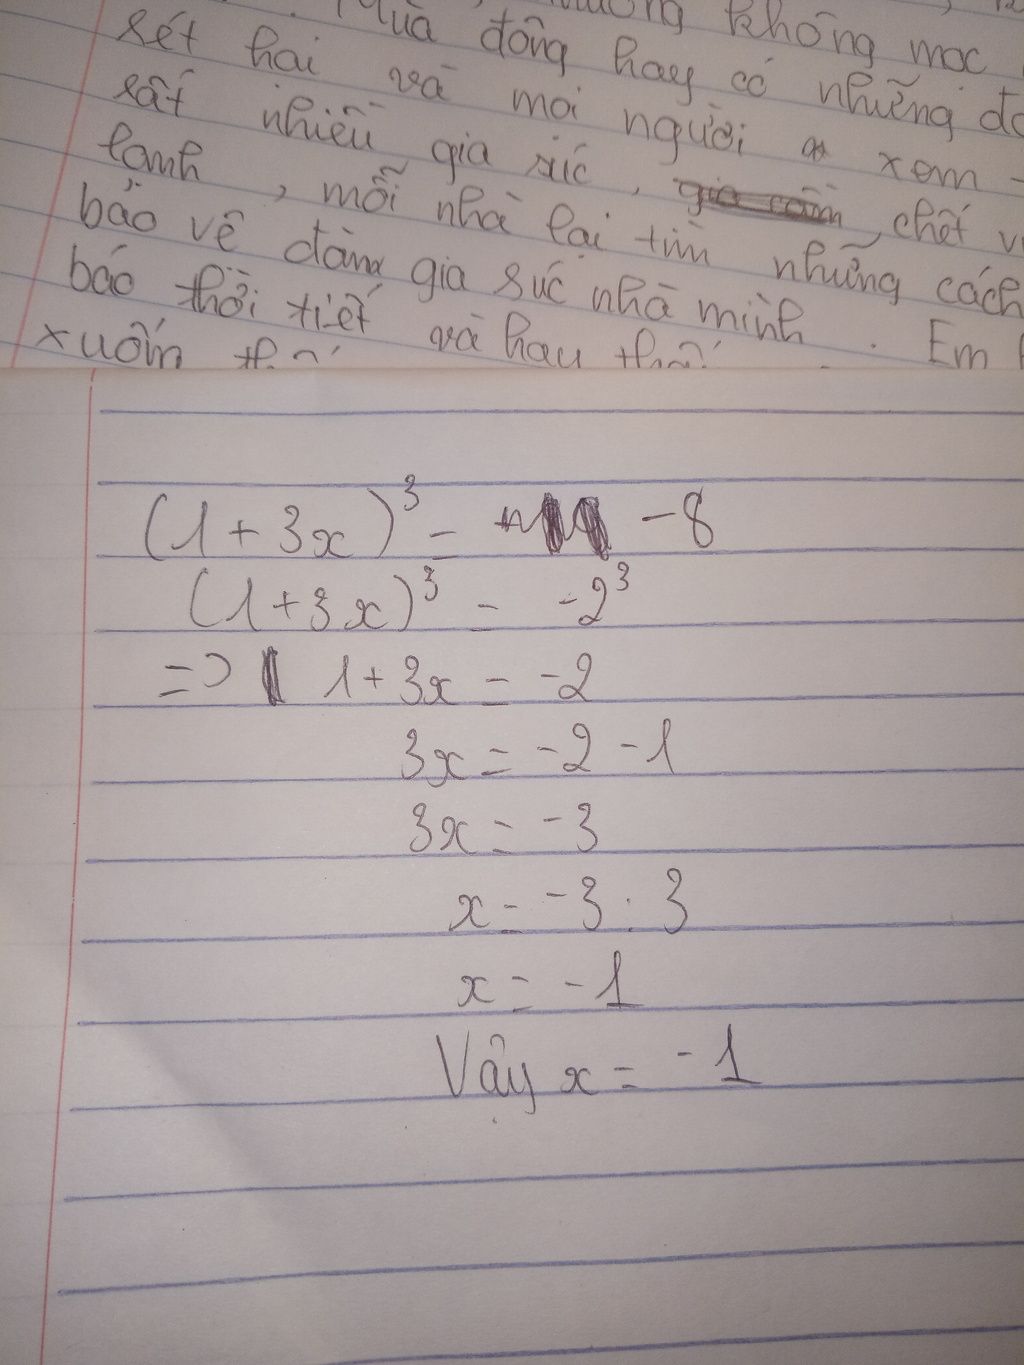 Mùa đông không mọc
rét hại và mọi người xem
rất nhiều gia súc, chết
lạnh, mỗi nhà lại tìm những cách
bảo vệ đàn gia súc nhà mình. Em
báo thời tiết và hay
xuống
(1 + 3x)³ = -8
(1 + 3x)³ = -2³
=> 1 + 3x = -2
3x = -2 - 1
3x = -3
x = -3 : 3
x = -1
Vậy x = -1